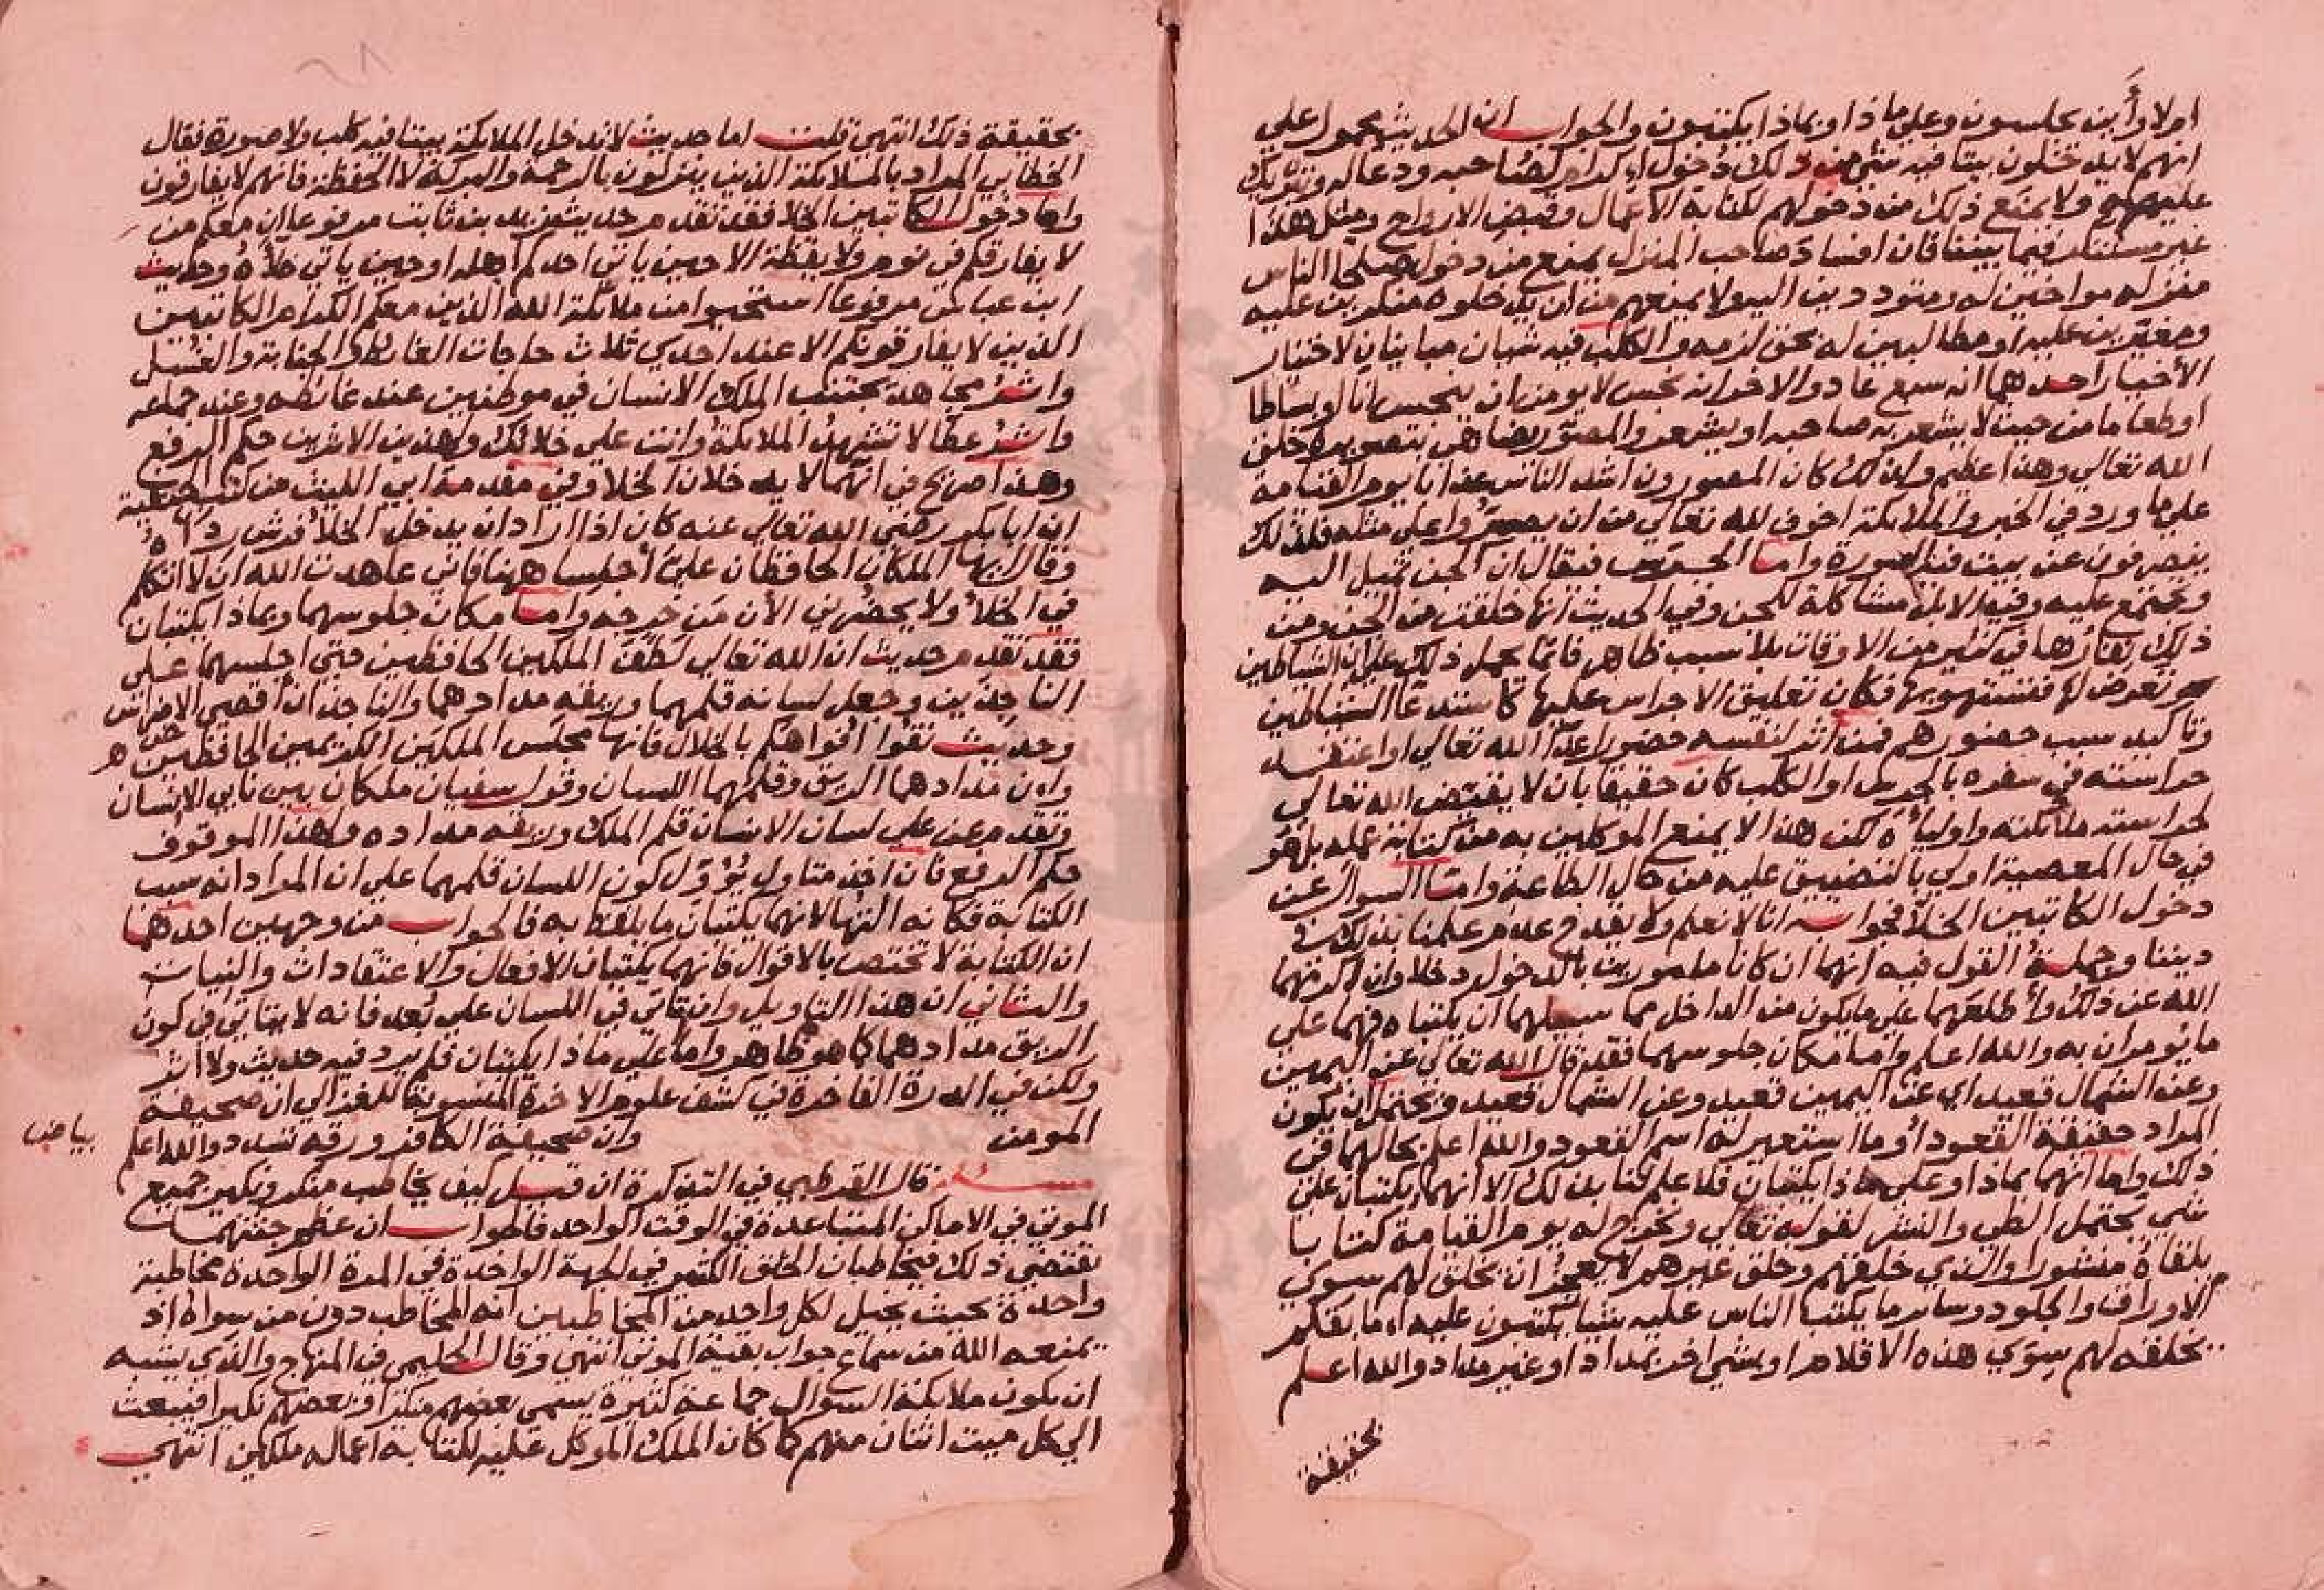 اولا وأين يجلسون وعلي ماذا وبماذا يكتبون والجواب ان الحديث محمول علي
انهم لا يدخلون بيتا فيه شيء من ذلك دخول اكرام لصاحبه ودعا له وتبريك
عليهم ولا يمنع ذلك من دخولهم لكتابة الاعمال وقبض الارواح ومثل هذا
غير مستنكر فيما بيننا فان افساد صاحب المنزل يمنع من دخول صلحا الناس
منزله مواخين له ومتوددين اليه ولا يمنعهم من ان يدخلوه منكرين عليه
ومغيرين عليه او مطالبين له بحق لزمه والكلب فيه شيان مباينان لاختيار
الأخيار احدهما انه سبع عاد والاخر انه نجس لا يومن ان ينجس انا او بساطا
او طعاما من حيث لا يشعر به صاحبه او يشعر والمصور يضاهي بتصويره خلق
الله تعالي وهذا عظيم ولذلك كان المصورون اشد الناس عذابا يوم القيامة
علي ما ورد في الخبر والملايكة اخوف لله تعالي من ان يصبروا علي مثله فلذلك
ينصرفون عن بيت فيه صورة واما الجرس فيقال ان الجن تميل اليه
وتجتمع عليه وفي الابل مشاكلة للجن وفي الحديث انها خلقت من الجن ومن
ذلك نفارها في كثير من الاوقات بلا سبب ظاهر فانما يحمل ذلك علي ان الشياطين
تعرض لها فتستهويها فكان تعليق الاجراس عليها كاستدعا الشياطين
وتأكيد سبب حضورهم فمن آثر لنفسه حضور اعدآ الله تعالي او اعتقد
حراسته في سفره بالجرس او الكلب كان حقيقا بان لا يقيض الله تعالي
لحراسته ملائكته واولياءه لكن هذا لا يمنع الموكلين به من كتابة عمله بل هو
في حال المعصية اولي بالتضييق عليه من حال الطاعة واما السوال عن
دخول الكاتبين الخلا فجوابه انا لا نعلم ولا يقدح عدم علمنا بذلك في
ديننا وجملة القول فيه انهما ان كانا مامورين بالدخول دخلا وان اكرمهما
الله عن ذلك وأطلعهما علي ما يكون من الداخل مما سبيلهما ان يكتباه فهما علي
ما يومران به والله اعلم واما مكان جلوسهما فقد قال الله تعالي عن اليمين
وعن الشمال قعيد اي عن اليمين قعيد وعن الشمال قعيد ويحتمل ان يكون
المراد حقيقة القعود أو ما استعير له اسم القعود والله اعلم بحالهما في
ذلك واما انهما بماذا وعلي ماذا يكتبان فلا علم لنا بذلك الا انهما يكتبان علي
شيء يحتمل الطي والنشر لقوله تعالي ونخرج له يوم القيامة كتابا
يلقاه منشورا والذي خلقهم وخلق غيرهم لا يعجز ان يخلق لهم سوي
الاوراق والجلود وساير ما يكتب الناس عليه شيا يكتبون عليه او ما يقلم
يخلقه لهم سوي هذه الاقلام او بشي اخر بمداد او غير مداد والله اعلم
بحقيقة
بحقيقة ذلك انتهي قلت اما حديث لا تدخل الملايكة بيتا فيه كلب ولا صورة فقال
الخطابي المراد بالملايكة الذين ينزلون بالرحمة والبركة لا الحفظة فانهم لا يفارقون
واما دخول الكاتبين الخلا فقد تقدم حديث زيد بن ثابت مرفوعا ان معكم من
لا يفارقكم في نوم ولا يقظة الا حين ياتي احدكم اهله او حين ياتي خلآه وحديث
ابن عباس مرفوعا استحيوا من ملائكة الله الذين معكم الكرام الكاتبين
الذين لا يفارقونكم الا عند احدي ثلاث حاجات الغائط والجنابة والغسل
واثر مجاهد يجتنب الملك الانسان في موطنين عند غائطه وعند جماعه
واثر عطا لا تشهد الملايكة وانت علي خلائك ولهذين الاثرين حكم الرفع
وهذا صريح في انهما لا يدخلان الخلا وفي مقدمة ابي الليث من كتب الحنفية
ان ابا بكر رضي الله تعالي عنه كان اذا اراد ان يدخل الخلا فرش رداه
وقال ايها الملكان الحافظان علي أجلسا ههنا فاني عاهدت الله ان لا اتكلم
في الخلأ ولا يحضرني الأن من خرجه واما مكان جلوسهما وبماذا يكتبان
فقد تقدم حديث ان الله تعالي لطف الملكين الحافظين حتي اجلسهما علي
الناجذين وجعل لسانه قلمهما وريقه مدادهما والناجذان أقصي الاضراس
وحديث نقوا افواهكم بالخلال فانها مجلس الملكين الكريمين الحافظين
وان مدادهما الريق وقلمهما اللسان وقول سفيان ملكان بين نابي الانسان
وتقدم عن علي لسان الانسان قلم الملك وريقه مداده ولهذا الموقوف
حكم الرفع فان اخذ متاول يؤول كون اللسان قلمهما علي ان المراد انه سبب
الكتابة فكانه التها لانهما يكتبان ما يلفظ به فالجواب من وجهين احدهما
ان الكتابة لا تختص بالاقوال فانهما يكتبان الافعال والاعتقادات والنيات
والثاني ان هذا التاويل وان تاتي في اللسان علي بعد فانه لا يتاتي في كون
الريق مدادهما كما هو ظاهر واما علي ماذا يكتبان فلم يرد فيه حديث ولا اثر
ولكن في الدرة الفاخرة في كشف علوم الاخرة المنسوبة للغزالي ان صحيفة
المومن وان صحيفة الكافر ورقة سدر والله اعلم
بياض
مسئلة قال القرطبي في التذكرة ان قيل كيف يخاطب منكر ونكير جميع
الموتي في الاماكن المتباعدة في الوقت الواحد فالجواب ان عظم جثتهما
يقتضي ذلك فيخاطبان الخلق الكثير في الجهة الواحدة في المرة الواحدة مخاطبة
واحدة بحيث يخيل لكل واحد من المخاطبين انه المخاطب دون من سواه اذ
يمنعه الله من سماع جواب بقية الموتي انتهي وقال الحليمي في المنهاج والذي يشبه
ان يكون ملائكة السوال جماعة كثيرة يسمي بعضهم منكرا وبعضهم نكيرا فيبعث
الي كل ميت اثنان منهم كما كان الملك الموكل عليه لكتابة اعماله ملكين انتهي